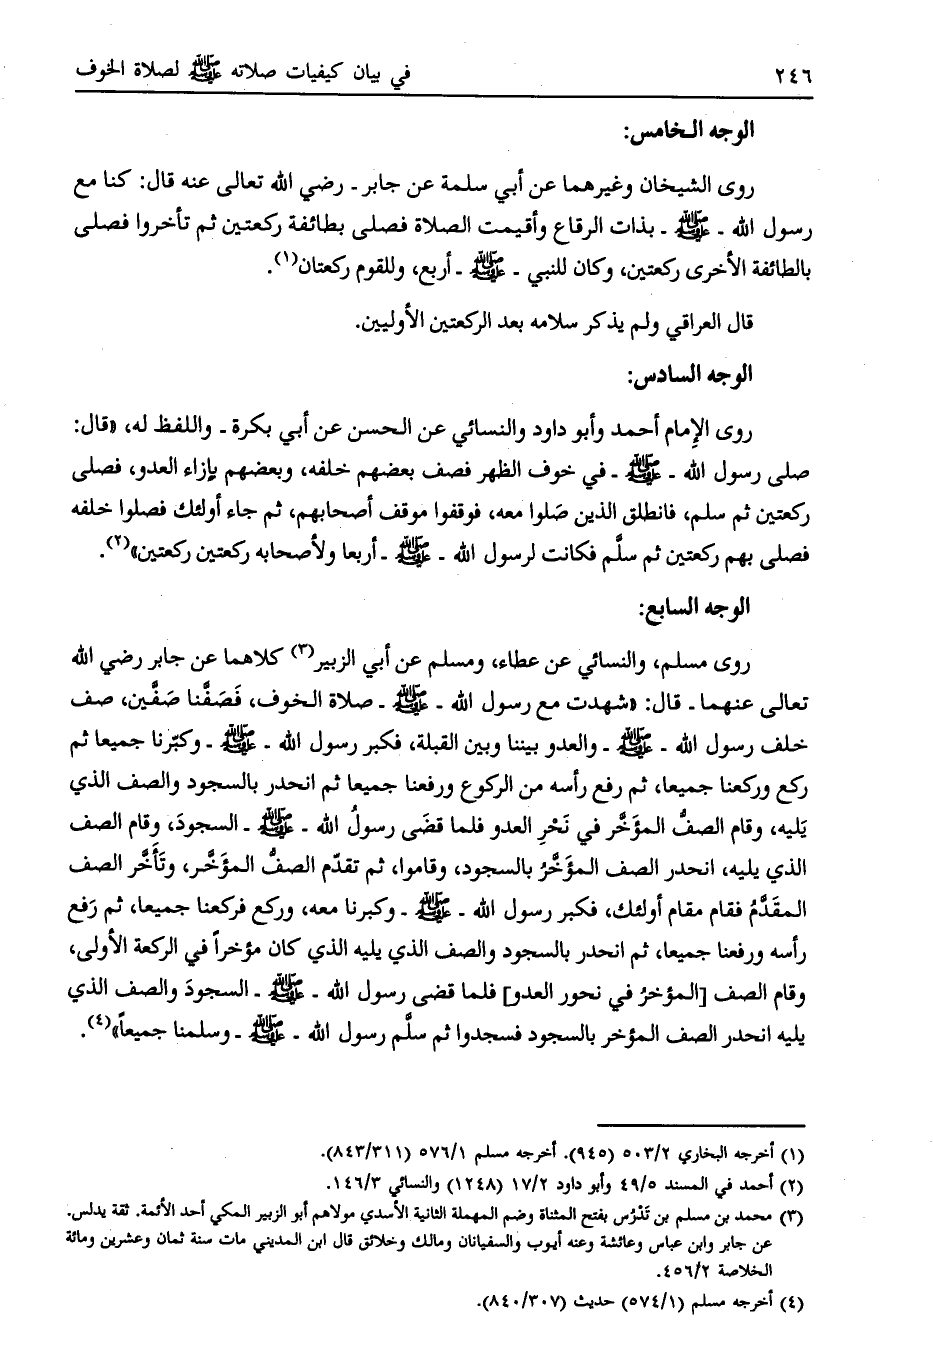 ٢٤٦
في بيان كيفيات صلاته ﷺ لصلاة الخوف
الوجه الخامس:
روى الشيخان وغيرهما عن أبي سلمة عن جابر ـ رضي الله تعالى عنه قال: كنا مع
رسول الله ـ ﷺ ـ بذات الرقاع وأقيمت الصلاة فصلى بطائفة ركعتين ثم تأخروا فصلى
بالطائفة الأخرى ركعتين، وكان للنبي ـ ﷺ ـ أربع، وللقوم ركعتان(١).
قال العراقي ولم يذكر سلامه بعد الركعتين الأوليين.
الوجه السادس:
روى الإمام أحمد وأبو داود والنسائي عن الحسن عن أبي بكرة ـ واللفظ له، «قال:
صلى رسول الله ـ ﷺ ـ في خوف الظهر فصف بعضهم خلفه، وبعضهم بإزاء العدو، فصلى
ركعتين ثم سلم، فانطلق الذين صَلوا معه، فوقفوا موقف أصحابهم، ثم جاء أولئك فصلوا خلفه
فصلى بهم ركعتين ثم سلَّم فكانت لرسول الله ـ ﷺ ـ أربعا ولأصحابه ركعتين ركعتين»(٢).
الوجه السابع:
روى مسلم، والنسائي عن عطاء، ومسلم عن أبي الزبير(٣) كلاهما عن جابر رضي الله
تعالى عنهما ـ قال: «شهدت مع رسول الله ـ ﷺ ـ صلاة الخوف، فَصَفَّنا صَفَّين، صف
خلف رسول الله ـ ﷺ ـ والعدو بيننا وبين القبلة، فكبر رسول الله ـ ﷺ ـ وكبّرنا جميعا ثم
ركع وركعنا جميعا، ثم رفع رأسه من الركوع ورفعنا جميعا ثم انحدر بالسجود والصف الذي
يَليه، وقام الصفُّ المؤَخَّر في نَحْرِ العدو فلما قضَى رسولُ الله ـ ﷺ ـ السجودَ، وقام الصف
الذي يليه، انحدر الصف المؤَخَّرُ بالسجود، وقاموا، ثم تقدّم الصفُّ المؤَخَّر، وتَأَخَّر الصف
المقَدَّمُ فقام مقام أولئك، فكبر رسول الله ـ ﷺ ـ وكبرنا معه، وركع فركعنا جميعا، ثم رَفع
رأسه ورفعنا جميعا، ثم انحدر بالسجود والصف الذي يليه الذي كان مؤخراً في الركعة الأولى،
وقام الصف [المؤخرُ في نحور العدو] فلما قضى رسول الله ـ ﷺ ـ السجودَ والصف الذي
يليه انحدر الصف المؤخر بالسجود فسجدوا ثم سلَّم رسول الله ـ ﷺ ـ وسلمنا جميعاً»(٤).
(١) أخرجه البخاري ٥٠٣/٢ (٩٤٥). أخرجه مسلم ٥٧٦/١ (٨٤٣/٣١١).
(٢) أحمد في المسند ٤٩/٥ وأبو داود ١٧/٢ (١٢٤٨) والنسائي ١٤٦/٣.
(٣) محمد بن مسلم بن تَدْرُس بفتح المثناة وضم المهملة الثانية الأسدي مولاهم أبو الزبير المكي أحد الأئمة. ثقة يدلس.
عن جابر وابن عباس وعائشة وعنه أيوب والسفيانان ومالك وخلائق قال ابن المديني مات سنة ثمان وعشرين ومائة
الخلاصة ٤٥٦/٢.
(٤) أخرجه مسلم (٥٧٤/١) حديث (٨٤٠/٣٠٧).